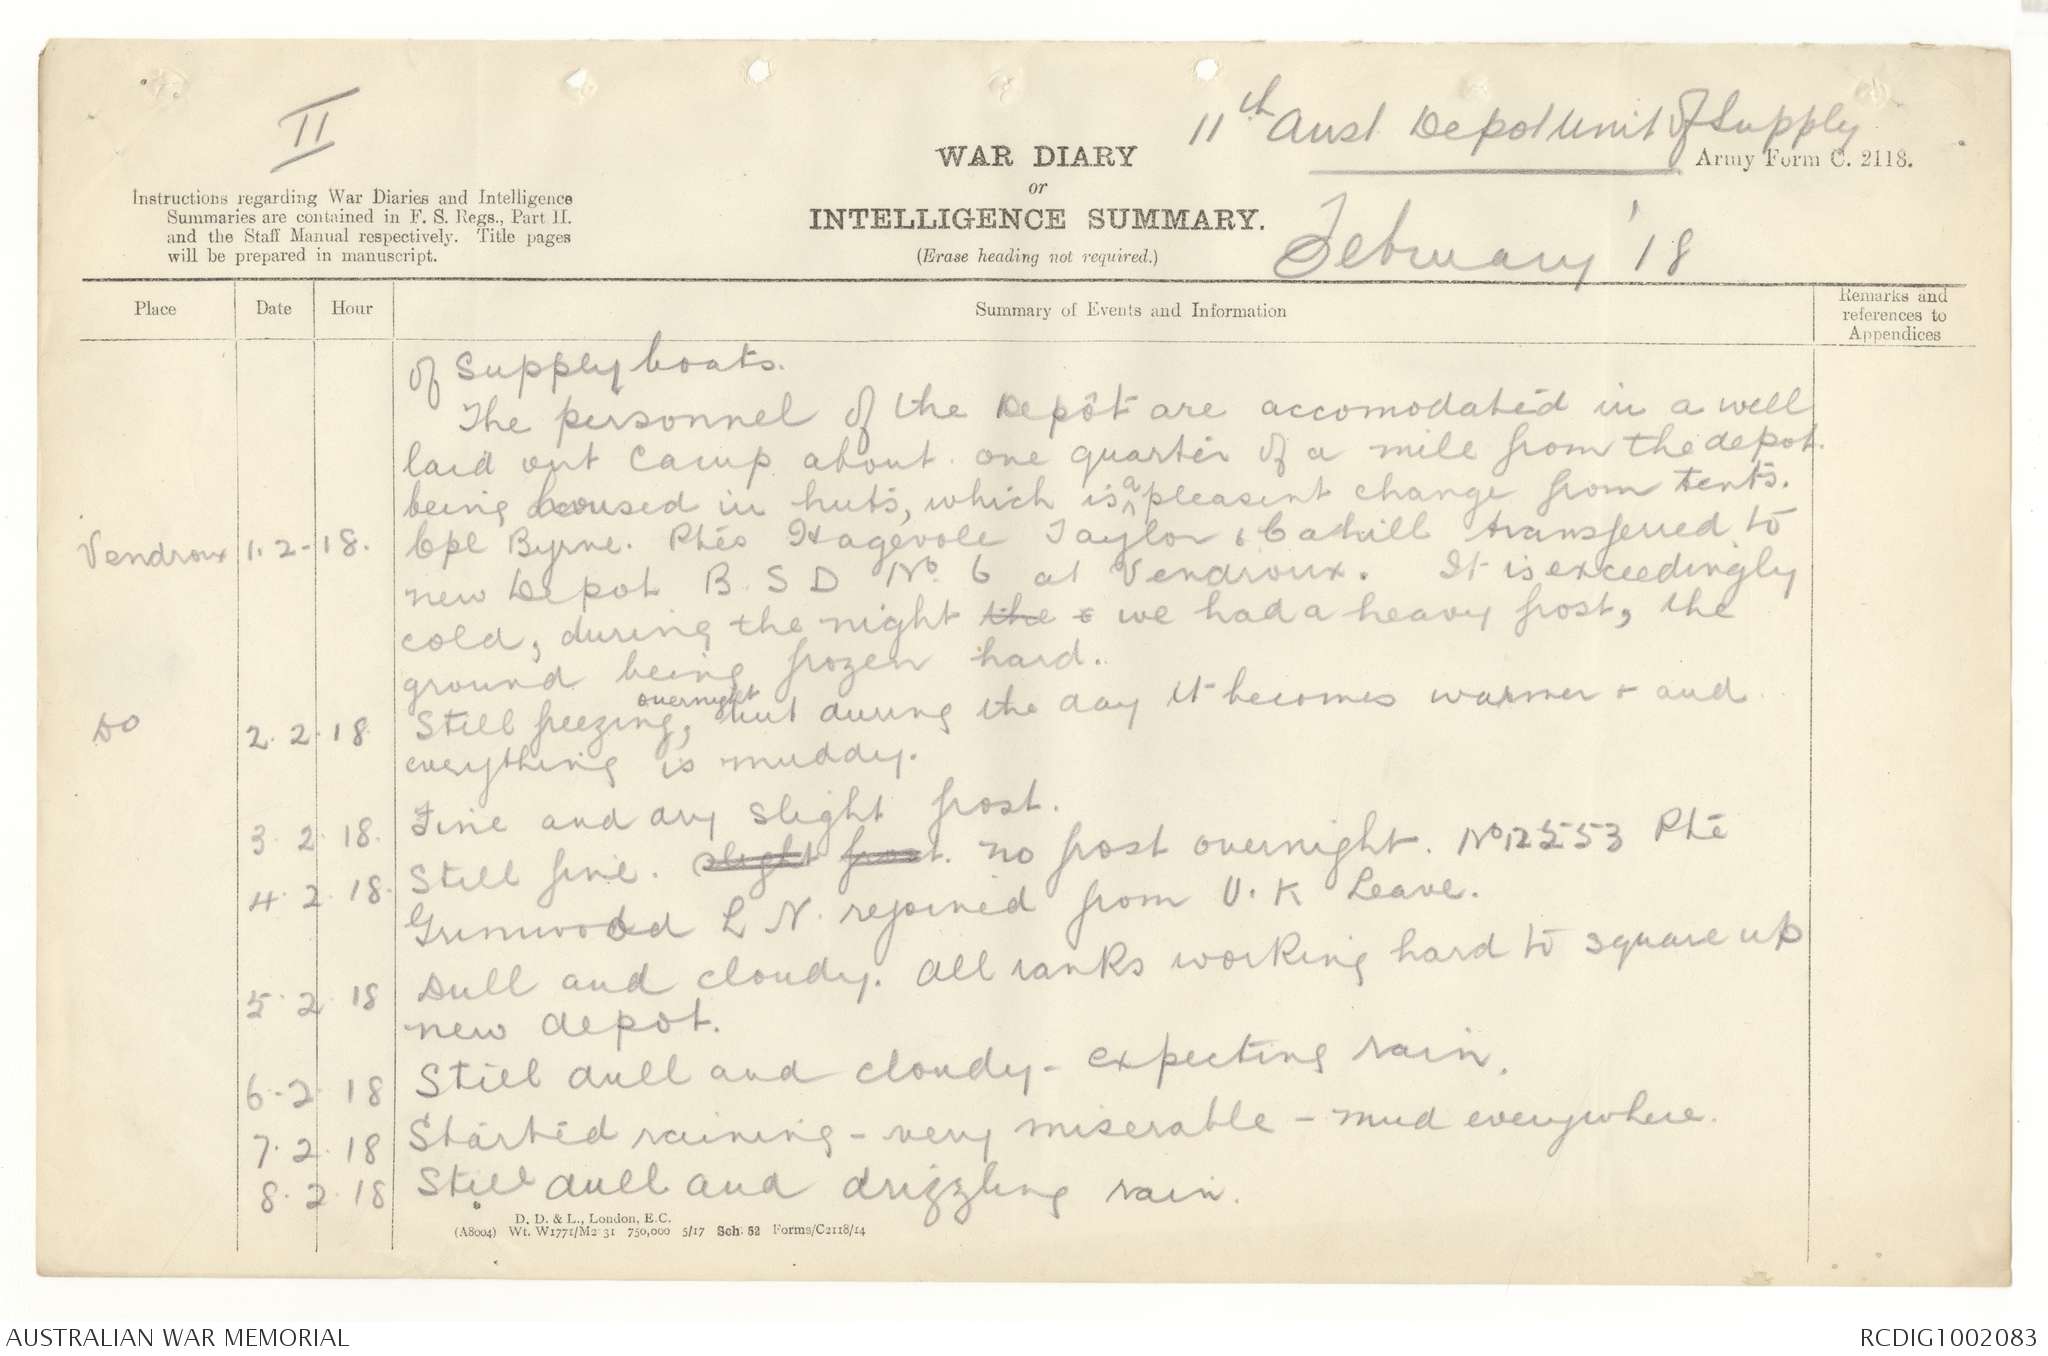 II
11th Aust Depot Unit of Supply
WAR DIARY
or
INTELLIGENCE SUMMARY.
(Erase heading not required.)
Army Form C. 2118.
February '18
Instructions regarding War Diaries and Intelligence
Summaries are contained in F. S. Regs., Part II.
and the Staff Manual respectively. Title pages
will be prepared in manuscript.
Place Date Hour Summary of Events and Information Remarks and references to Appendices
of Supply boats.
The personnel of the Depôt are accomodated in a well
laid out Camp about one quarter of a mile from the depot.
being housed in huts, which is a pleasent change from tents.
Vendroux 1.2-18. Cpl Byrne. Ptes Hagevole Taylor & Cahill transferred to
new Depot B. S D No. 6 at Vendroux. It is exceedingly
cold, during the night the & we had a heavy frost, the
ground being frozen hard.
Do 2.2.18 Still freezing, overnight but during the day it becomes warmer & and
everything is muddy.
3.2.18. Fine and dry slight frost.
4.2.18. Still fine. slight frost. no frost overnight. No 12553 Pte
Grimwood L N. rejoined from U.K Leave.
5.2.18 Dull and cloudy. All ranks working hard to square up
new depôt.
6.2.18 Still dull and cloudy - expecting rain.
7.2.18 Started raining - very miserable - mud everywhere.
8.2.18 Still dull and drizzling rain.
D. D. & L., London, E.C.
(A8004) Wt. W1771/M2 31 750,000 5/17 Sch. 52 Forms/C2118/14
AUSTRALIAN WAR MEMORIAL RCDIG1002083